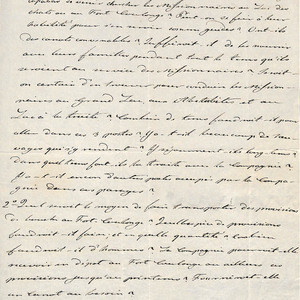 capables de venir chercher les Missionnaires au Lac des
chats ou au Fort Coulonge? Peut-on se fier à leur
habileté pour s'en servir comme guides? Ont-ils
des canots convenables? Suffiroit-il de les nourrir
avec leurs familles pendant tout le temps qu'ils
seroient au service des Missionnaires? Seroit
on certain d'en trouver pour mener les Mission-
naires au Grand Lac, aux Abbitibbis et au
Lac à la truite? Combien de tems faudroit-il pour
aller dans ces 3 postes? Y a-t-il beaucoup de sau-
vages qui s'y rendent? Y séjournent-ils long-tems?
Dans quel tems fait-ils la traite avec la Compagnie?
Y a-t-il encore d'autres postes occupés par la Compa-
gnie dans ces parages?
2° Quel seroit le moyen de faire transporter des provisions
de bouche au Fort Coulonge? Quelle espèce de provisions
faudroit-il faire, et en quelle quantité? Combien
faudroit-il d'hommes? La Compagnie pourroit-elle
recevoir en dépôt au Fort Coulonge ou ailleurs ces
provisions jusqu'au printems? Fourniroit-elle
un canot au besoin?